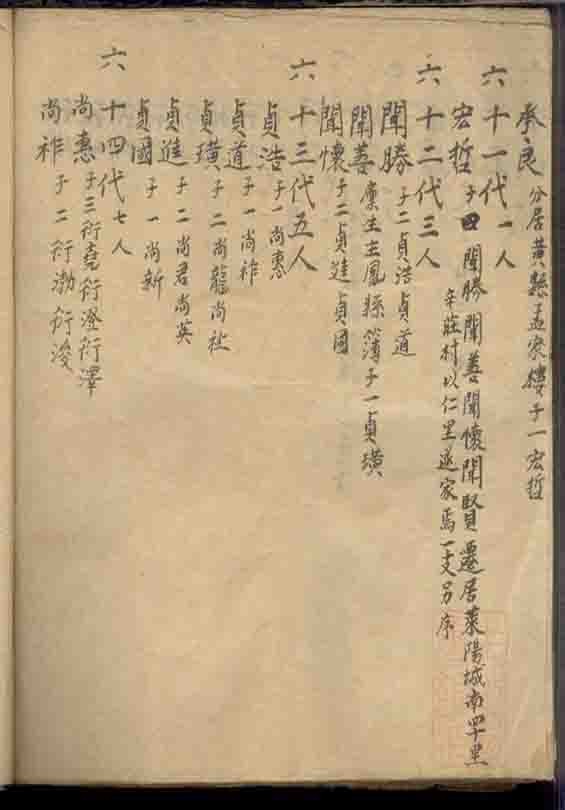 承良 分居黃縣孟家樓子一宏哲
六十一代一人
宏哲 子四聞勝聞善聞懷聞賢遷居萊陽城南四十里
辛莊村以仁里遂家焉一支另序
六十二代三人
聞勝 子二貞浩貞道
聞善 廩生主鳳縣簿子一貞璜
聞懷 子二貞進貞國
六十三代五人
貞浩 子一尚惠
貞道 子一尚祚
貞璜 子二尚龍尚社
貞進 子二尚君尚英
貞國 子一尚新
六十四代七人
尚惠 子三衍堯衍澄衍澤
尚祚 子二衍渤衍浚